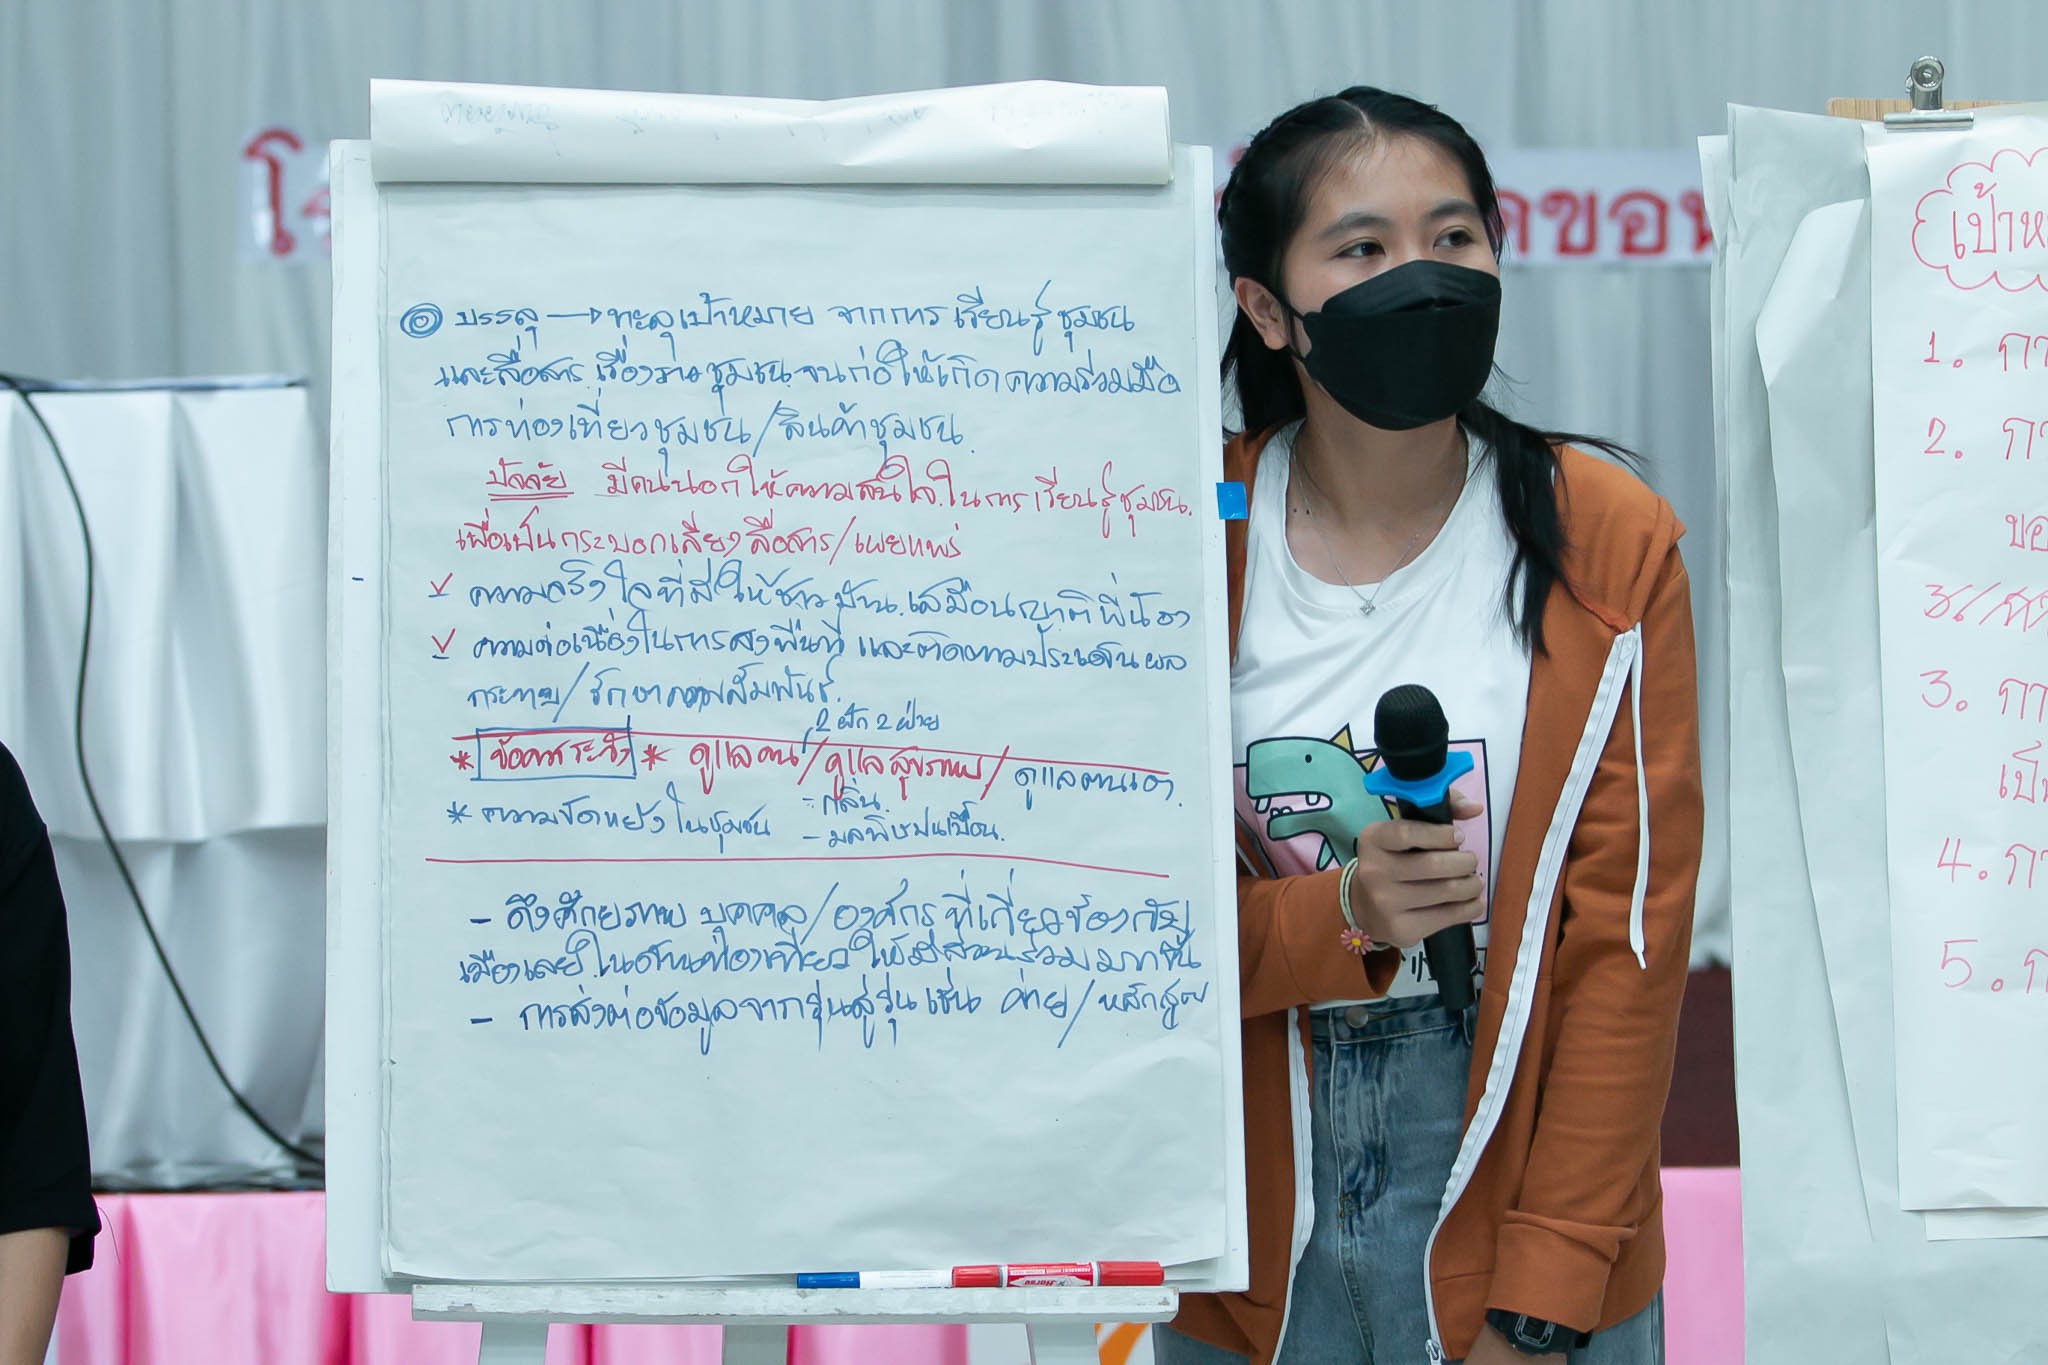 โร
ดขอน
◎ บรรลุ → ทะลุเป้าหมาย จากการ เรียนรู้ ชุมชน
และสื่อสาร เรื่องราวชุมชน จนก่อให้เกิดความร่วมมือ
การท่องเที่ยวชุมชน/สินค้าชุมชน.
ปัจจัย มีคนนอกให้ความสนใจในการ เรียนรู้ชุมชน.
เพื่อเป็นกระบอกเสียง สื่อสาร/เผยแพร่
✓ ความจริงใจที่มีให้ชาวบ้าน เสมือนญาติพี่น้อง
✓ ความต่อเนื่องในการลงพื้นที่ และติดตามประเมินผล
กระทบ/รักษาความสัมพันธ์.
2 ฝัก 2 ฝ่าย
* ข้อควรระวัง * ดูแลคน/ดูแลสุขภาพ/ดูแลตนเอง.
* ความขัดแย้งในชุมชน - กลิ่น.
- มลพิษปนเปื้อน.
- ดึงศักยภาพ บุคคล/องค์กร ที่เกี่ยวข้องกับ
เมืองเลย ในด้านท่องเที่ยว ให้มีส่วนร่วมมากขึ้น
- การส่งต่อข้อมูลจากรุ่นสู่รุ่น เช่น ค่าย/หลักสูตร
Horse
เป้าห
1. กา
2. กา
ขอ
3. กา
เป็น
4. กา
5. ก